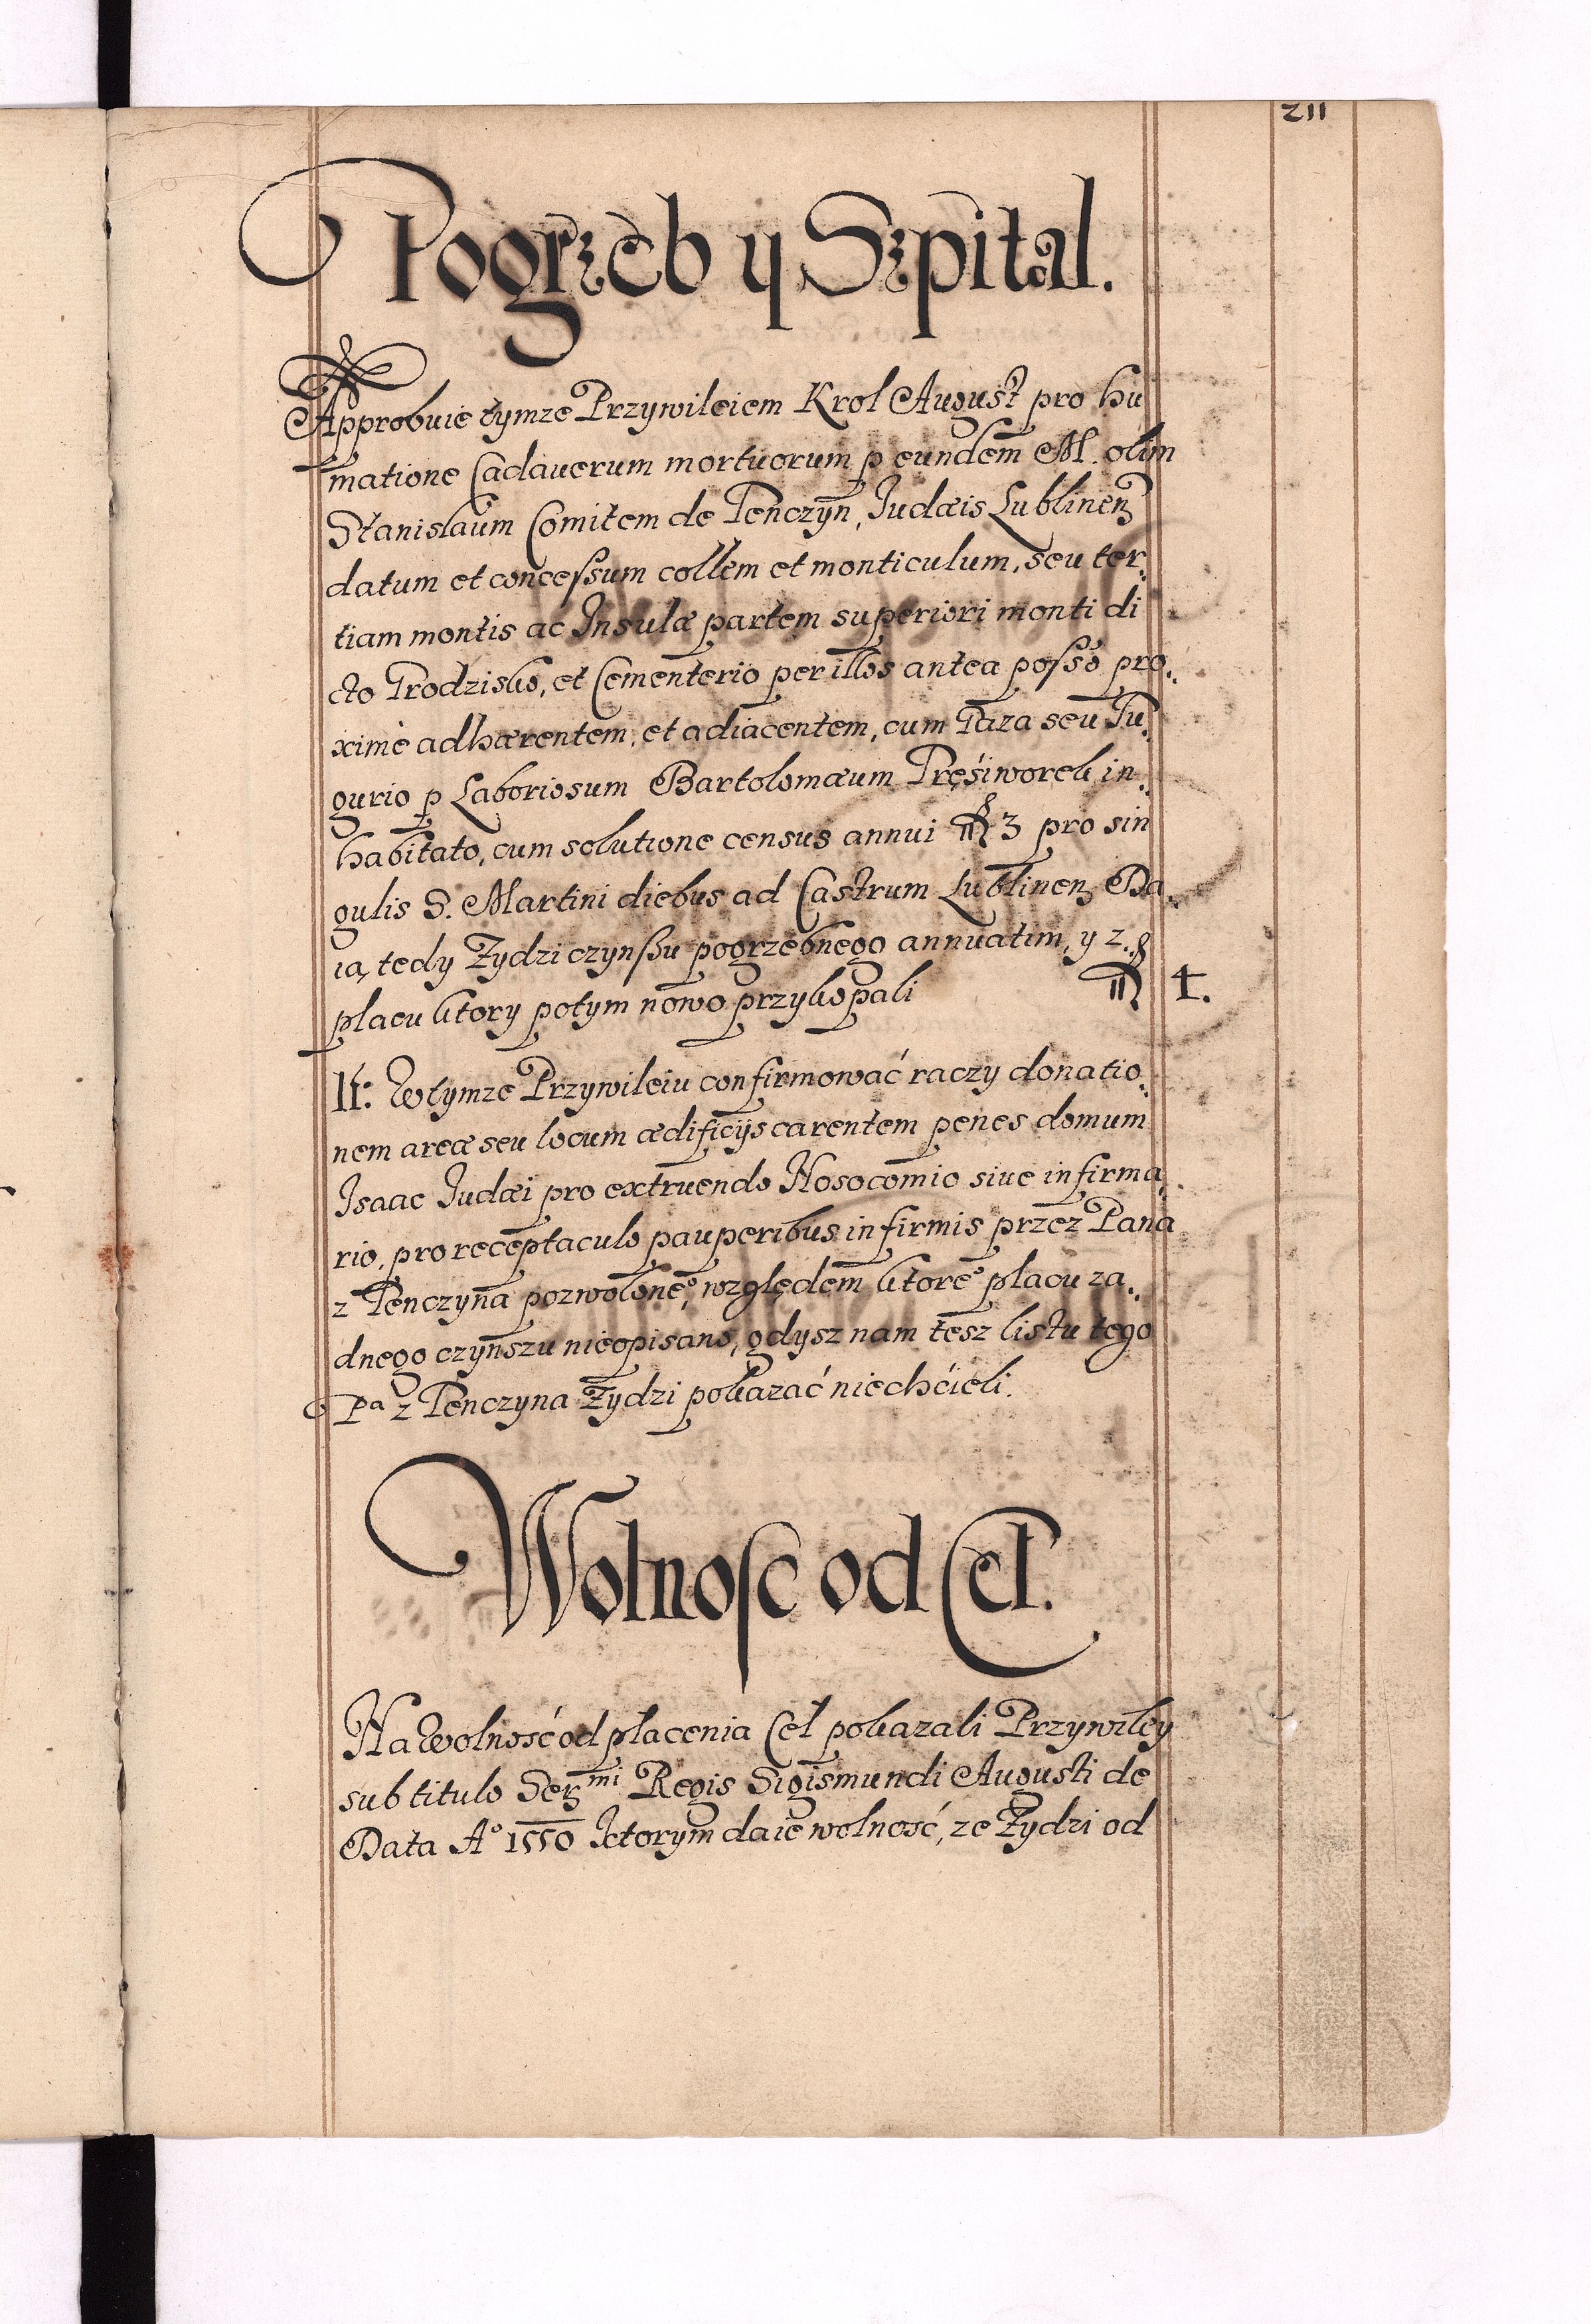 211
Pogrzeb y Szpital.
Approbuie tymze Przywileiem Krol August pro hu
matione Cadauerum mortuorum p eundem M. olim
Stanislaum Comitem de Tenczyn, Iudæis Lublinen
datum et concessum collem et monticulum, seu ter„
tiam montis ac Insulæ partem superiori monti di
cto Grodzisko, et Cementerio per illos antea posso pro„
ximè adhærentem, et adiacentem, cum Gaza seu Tu„
gurio p Laboriosum Bartolomæum in„
habitato, cum solutione census annui 3 pro sin
gulis S. Martini diebus ad Castrum Lublinen Da„
ia, tedy Zydzi czynszu pogrzebnego annuatim, y z„
placu ktory potym nowo przykopali 4.
It: W tymze Przywileiu confirmować raczy donatio„
nem areæ seu locum ædificijs carentem penes domum
Isaac Iudæi pro extruendo Nosocomio siue infirma„
rio, pro receptaculo pauperibus infirmis przez Pana
z Tenczyna pozwolone°, względem ktore° placu za„
dnego czynszu nieopisano, gdysz nam tesz listu tego
Pa z Tenczyna Zydzi pokazać niechćieli.
Wolnosc od Cel.
Na Wolność od płacenia Ceł pokazali Przywiley
sub titulo Sermi Regis Sigismundi Augusti de
Data A° 1550 Ktorym daie wolność, ze Zydzi od